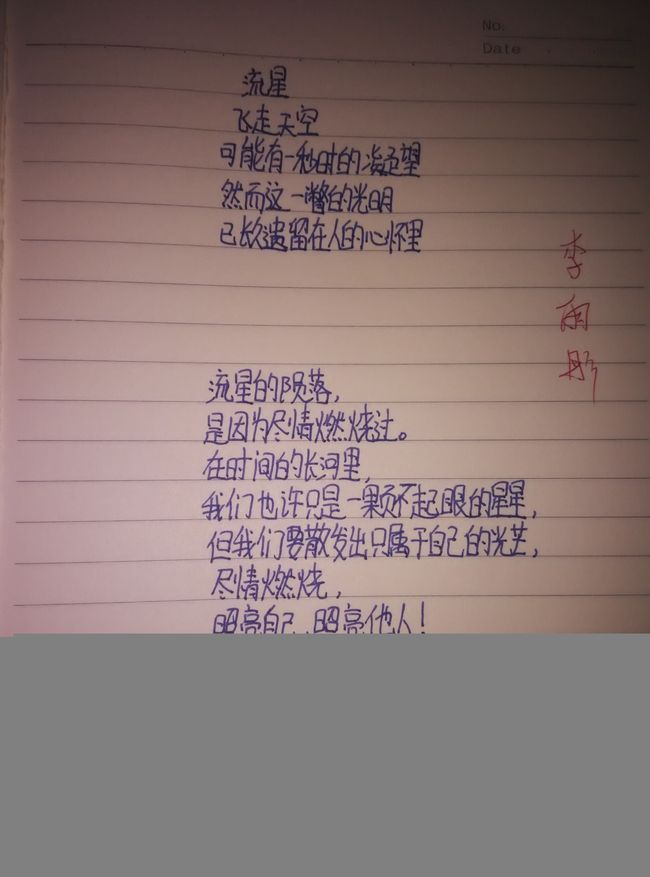 No.
Date
流星
飞走天空
可能有一秒时的凝望
然而这一瞥的光明
已长久遗留在人的心怀里
李雨彤
流星的陨落,
是因为尽情燃烧过。
在时间的长河里,
我们也许只是一颗不起眼的星星,
但我们要散发出只属于自己的光芒,
尽情燃烧,
照亮自己,照亮他人!